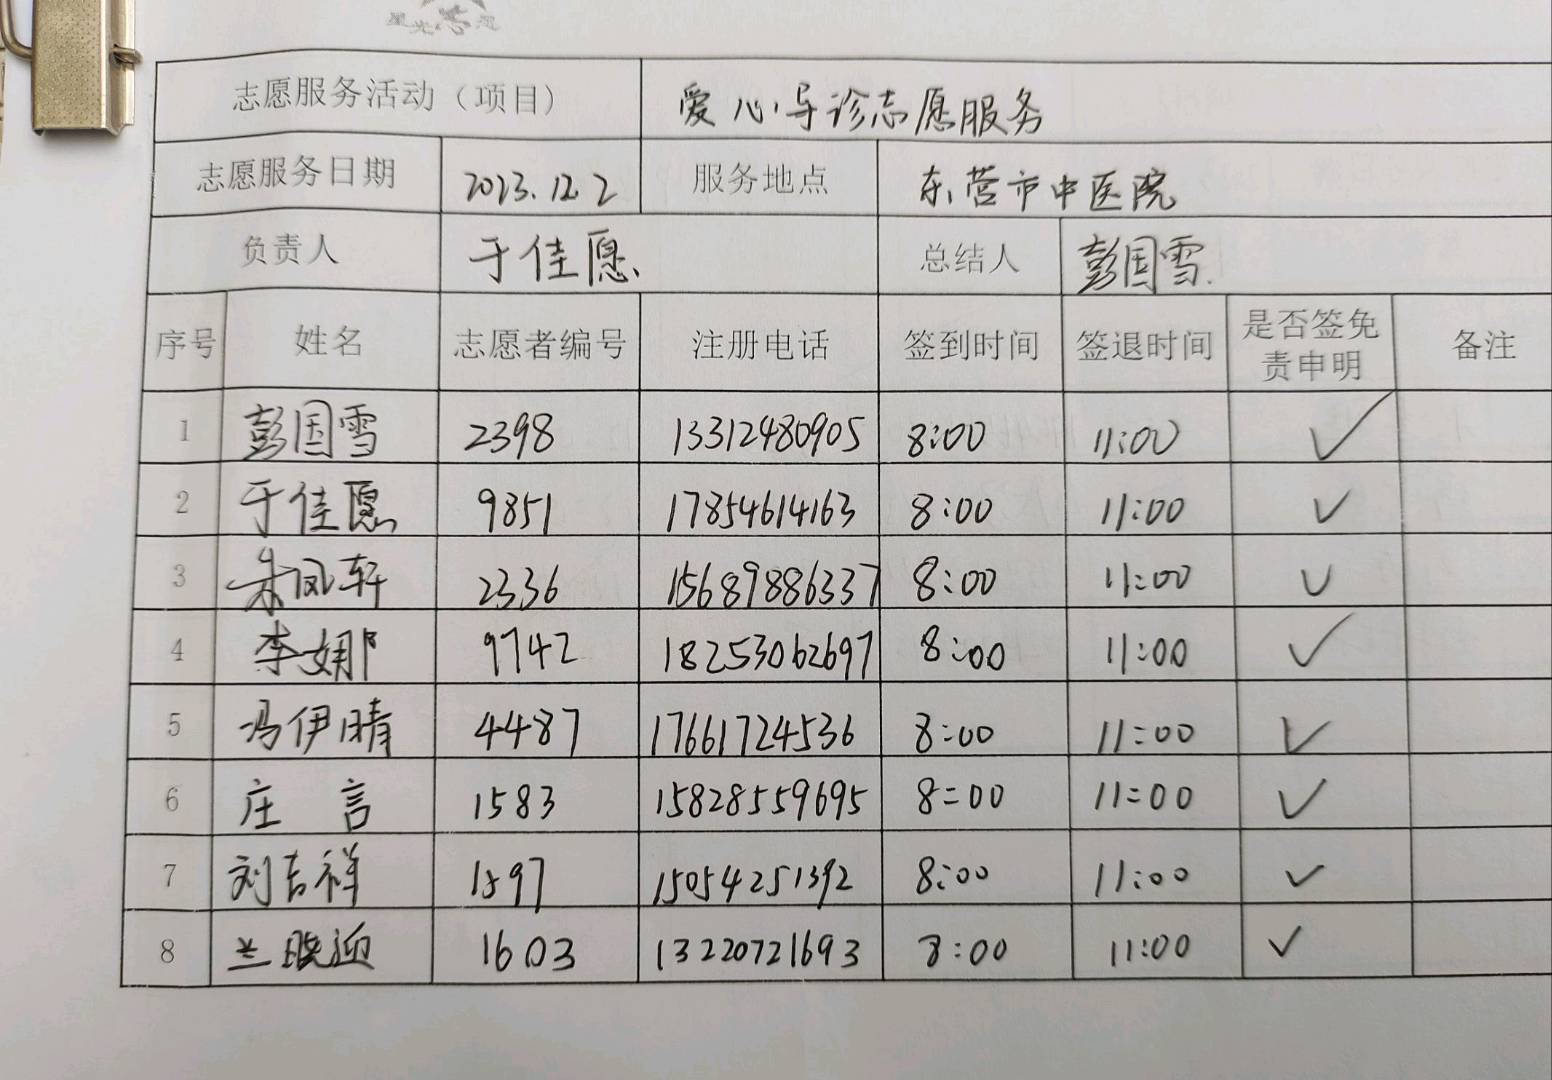 星光志愿
志愿服务活动（项目） 爱心导诊志愿服务
志愿服务日期 2023.12.2 服务地点 东营市中医院
负责人 于佳愿 总结人 彭国雪
序号 姓名 志愿者编号 注册电话 签到时间 签退时间 是否签免责申明 备注
1 彭国雪 2398 13312480905 8:00 11:00 ✓
2 于佳愿 9851 17854614163 8:00 11:00 ✓
3 朱凤轩 2336 15689886337 8:00 11:00 ✓
4 李娜 9742 18253062697 8:00 11:00 ✓
5 冯伊晴 4487 17661724536 8:00 11:00 ✓
6 庄言 1583 15828559695 8:00 11:00 ✓
7 刘吉祥 1897 15054251392 8:00 11:00 ✓
8 兰晓迎 1603 13220721693 8:00 11:00 ✓